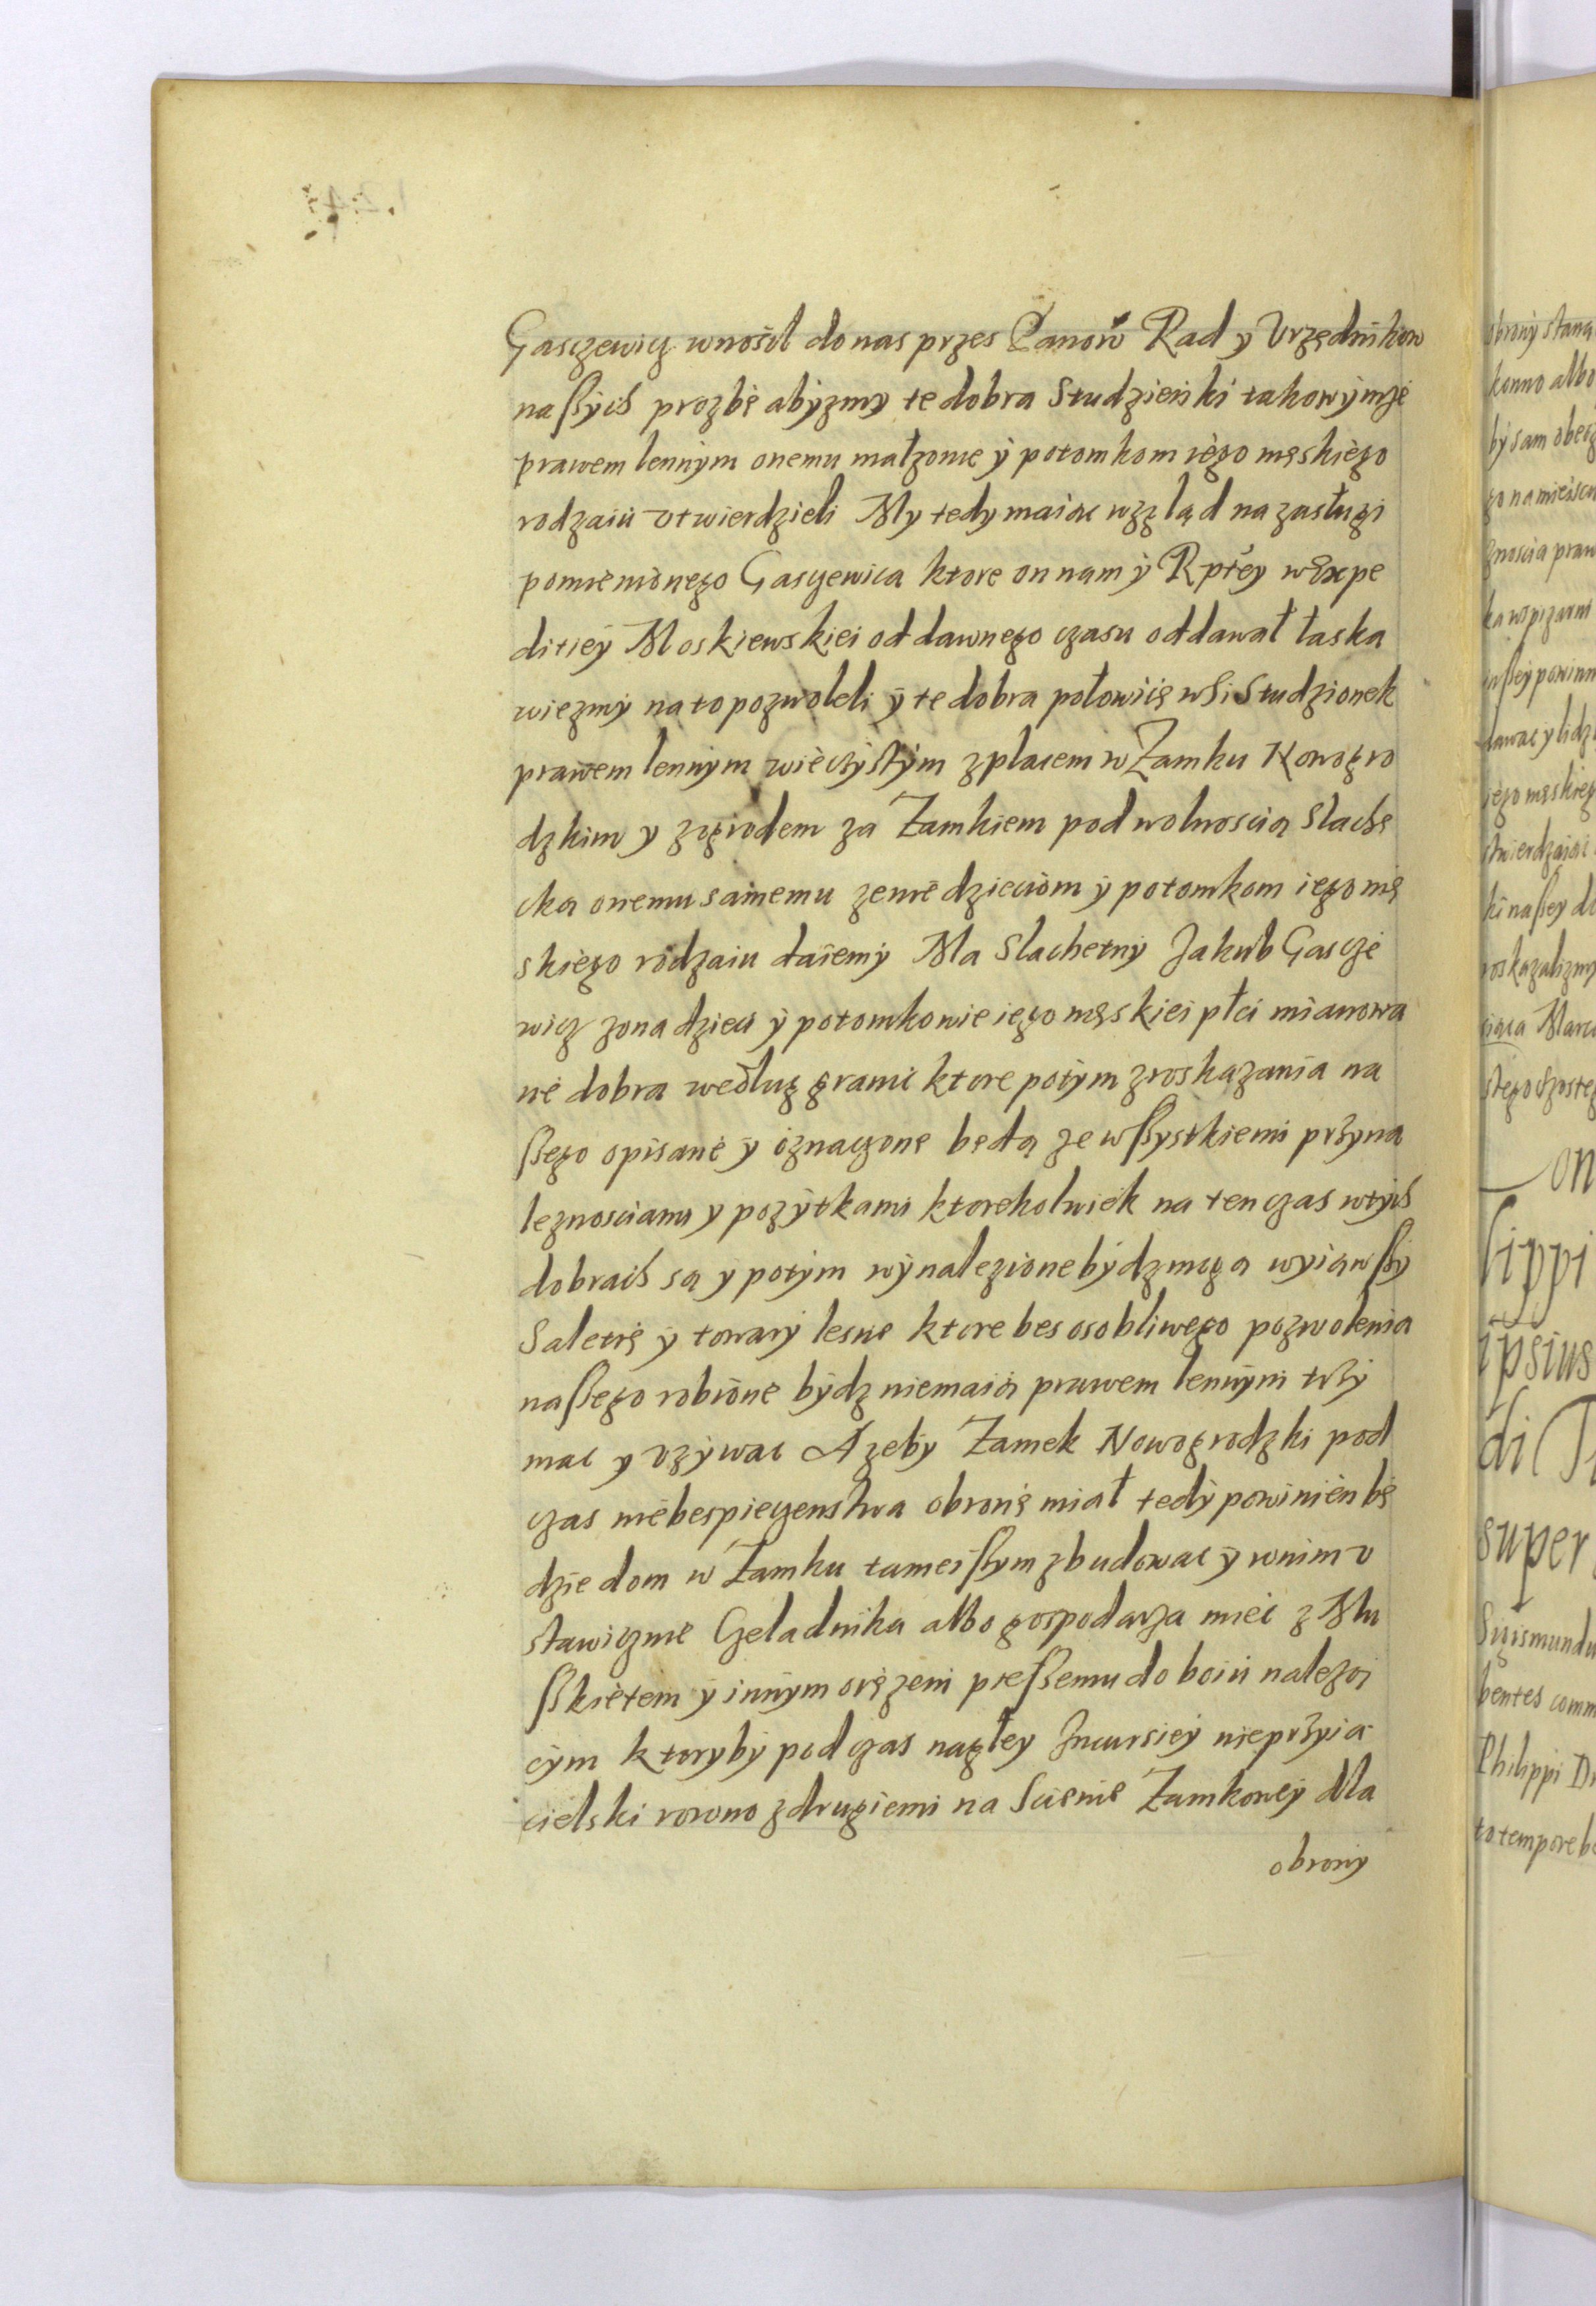 Gasczewicz wnosił do nas przes Panow Rad y Vrzędnikow
naßych prozbę abyzmy te dobra Studzienki takowymże
prawem lennym onemu małzonce y potomkom iego męskiego
rodzaiu vtwierdzieli My tedy maiac wzgląd na zasługi
pomienionego Gasczewica ktore on nam y Rptey w Expe
ditiey Moskiewskiei od dawnego czasu oddawał łaska
wiezmy na to pozwoleli y te dobra połowicę wsi Studzionek
prawem lennym wieczystym z placem w Zamku Nowogro
dzkim y zogrodem za Zamkiem pod wolnoscią Slache
cka onemu samemu zenie dzieciom y potomkom iego mę
skiego rodzaiu daiemy Ma Slachetny Jakub Gascze
wicz zona dzieci y potomkowie iego męskiei płci mianowa
ne dobra według granic ktore potym z roskazania na
ßego opisane y oznaczone będą ze wßystkiemi przyna
leznosciami y pozytkami ktorekolwiek na ten czas w tych
dobrach sa y potym wynalezione bydz mogą wyiąwßy
Saletrę y towary lesne ktore bes osobliwego pozwolenia
naßego robione bydz niemaią prawem lennym trzy
mac y vzywac A zeby Zamek Nowogrodzki pod
czas niebespieczenstwa obronę miał tedy powinien bę
dzie dom w Zamku tameißym zbudowac y w nim v
stawicznie Czeladnika albo gospodarza miec z Mu
ßkietem y innym orężem pießemu do boiu należą
cym ktoryby pod czas nagłey Incursiey nieprzyia
cielski rowno z drugiemi na Scienie Zamkowey dla
obrony